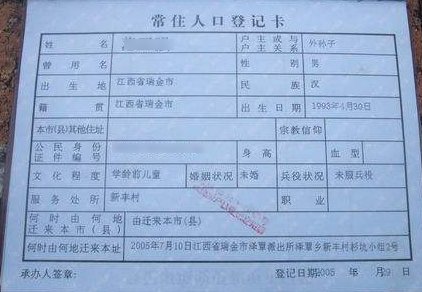 常住人口登记卡
姓 名 户主或与户主关系 外孙子
曾用名 性别 男
出生地 江西省瑞金市 民族 汉
籍贯 江西省瑞金市 出生日期 1993年4月30日
本市(县)其他住址 宗教信仰
公民身份证件编号 身高 血型
文化程度 学龄前儿童 婚姻状况 未婚 兵役状况 未服兵役
服务处所 新丰村 职业
何时由何地迁来本市(县) 由迁来本市(县)
何时由何地迁来本址 2005年7月10日江西省瑞金市泽覃派出所泽覃乡新丰村杉坑小组2号
承办人签章: 登记日期:2005 年 月 日